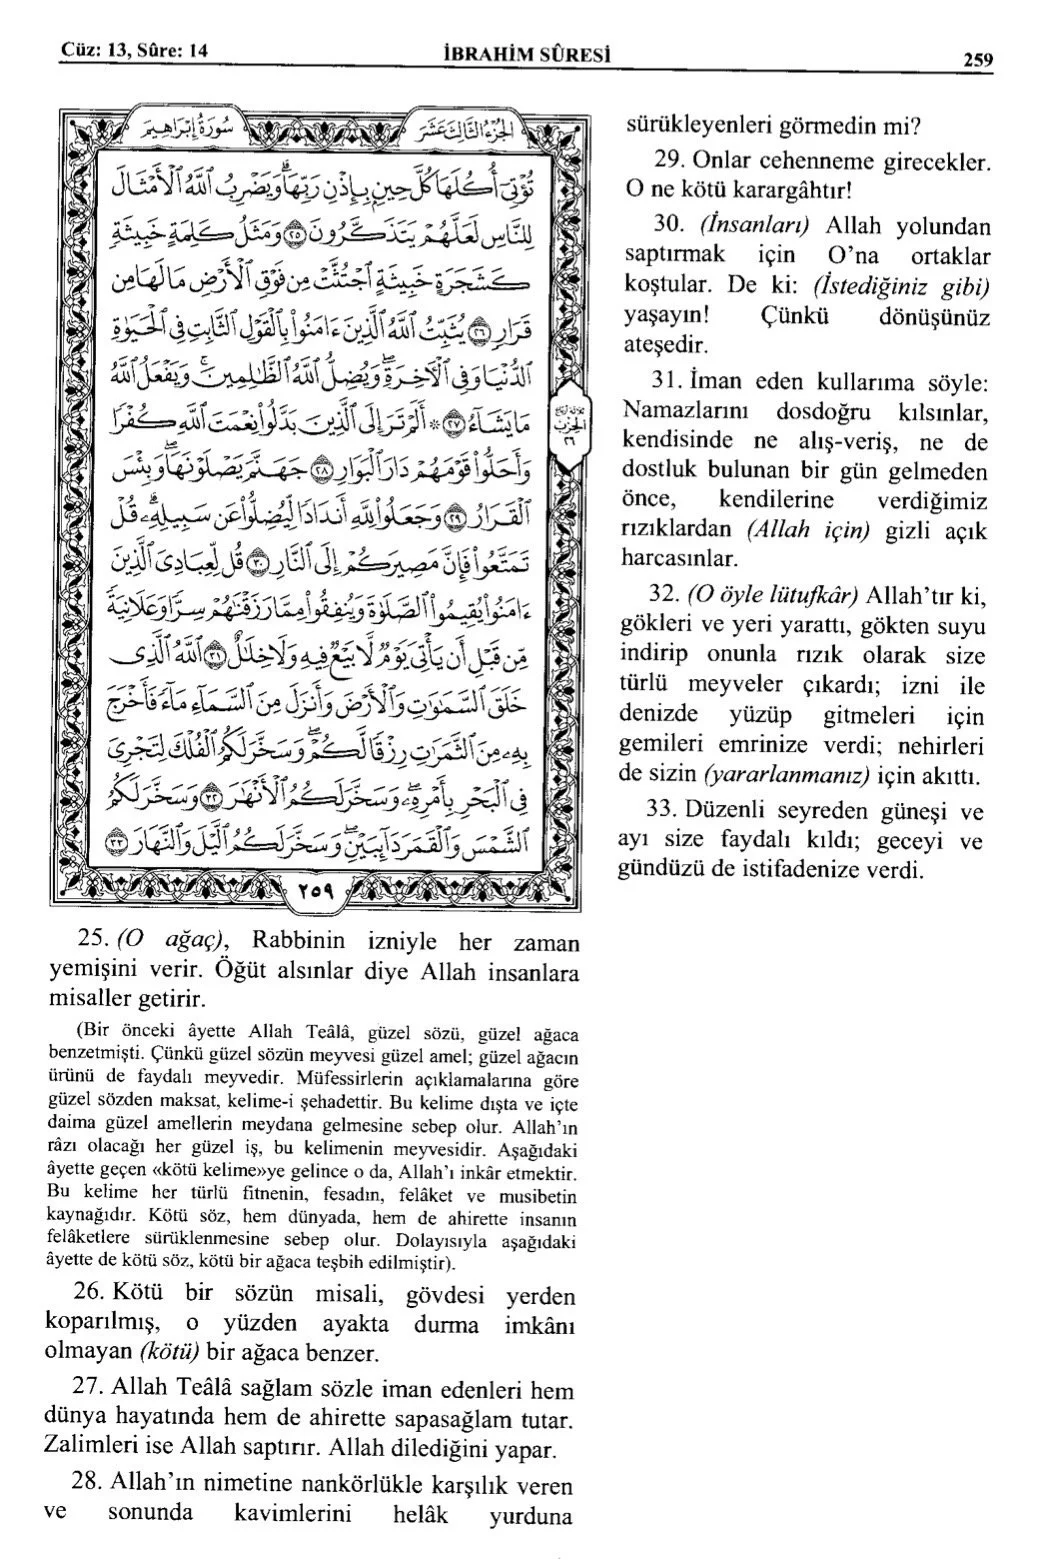 Cüz: 13, Sûre: 14
İBRAHİM SÛRESİ
259
سُورَةُ إِبْرَاهِيمَ
الجُزْءُ الثَّالِثَ عَشَرَ
تُؤْتِىٓ أُكُلَهَا كُلَّ حِينٍۭ بِإِذْنِ رَبِّهَاۗ وَيَضْرِبُ ٱللَّهُ ٱلْأَمْثَالَ
لِلنَّاسِ لَعَلَّهُمْ يَتَذَكَّرُونَ ٢٥ وَمَثَلُ كَلِمَةٍ خَبِيثَةٍ
كَشَجَرَةٍ خَبِيثَةٍ ٱجْتُثَّتْ مِن فَوْقِ ٱلْأَرْضِ مَا لَهَا مِن
قَرَارٍ ٢٦ يُثَبِّتُ ٱللَّهُ ٱلَّذِينَ ءَامَنُوا۟ بِٱلْقَوْلِ ٱلثَّابِتِ فِى ٱلْحَيَوٰةِ
ٱلدُّنْيَا وَفِى ٱلْأَخِرَةِۖ وَيُضِلُّ ٱللَّهُ ٱلظَّٰلِمِينَۚ وَيَفْعَلُ ٱللَّهُ
مَا يَشَآءُ ٢٧ * أَلَمْ تَرَ إِلَى ٱلَّذِينَ بَدَّلُوا۟ نِعْمَتَ ٱللَّهِ كُفْرًا
وَأَحَلُّوا۟ قَوْمَهُمْ دَارَ ٱلْبَوَارِ ٢٨ جَهَنَّمَ يَصْلَوْنَهَاۖ وَبِئْسَ
ٱلْقَرَارُ ٢٩ وَجَعَلُوا۟ لِلَّهِ أَندَادًا لِّيُضِلُّوا۟ عَن سَبِيلِهِۦۗ قُلْ
تَمَتَّعُوا۟ فَإِنَّ مَصِيرَكُمْ إِلَى ٱلنَّارِ ٣٠ قُل لِّعِبَادِىَ ٱلَّذِينَ
ءَامَنُوا۟ يُقِيمُوا۟ ٱلصَّلَوٰةَ وَيُنفِقُوا۟ مِمَّا رَزَقْنَٰهُمْ سِرًّا وَعَلَانِيَةً
مِّن قَبْلِ أَن يَأْتِىَ يَوْمٌ لَّا بَيْعٌ فِيهِ وَلَا خِلَٰلٌ ٣١ ٱللَّهُ ٱلَّذِى
خَلَقَ ٱلسَّمَٰوَٰتِ وَٱلْأَرْضَ وَأَنزَلَ مِنَ ٱلسَّمَآءِ مَآءً فَأَخْرَجَ
بِهِۦ مِنَ ٱلثَّمَرَٰتِ رِزْقًا لَّكُمْۖ وَسَخَّرَ لَكُمُ ٱلْفُلْكَ لِتَجْرِىَ
فِى ٱلْبَحْرِ بِأَمْرِهِۦۖ وَسَخَّرَ لَكُمُ ٱلْأَنْهَٰرَ ٣٢ وَسَخَّرَ لَكُمُ
ٱلشَّمْسَ وَٱلْقَمَرَ دَآئِبَيْنِۖ وَسَخَّرَ لَكُمُ ٱلَّيْلَ وَٱلنَّهَارَ ٣٣
ثلاثة أرباع
الحزب
٢٦
٢٥٩
25. (O ağaç), Rabbinin izniyle her zaman
yemişini verir. Öğüt alsınlar diye Allah insanlara
misaller getirir.
(Bir önceki âyette Allah Teâlâ, güzel sözü, güzel ağaca
benzetmişti. Çünkü güzel sözün meyvesi güzel amel; güzel ağacın
ürünü de faydalı meyvedir. Müfessirlerin açıklamalarına göre
güzel sözden maksat, kelime-i şehadettir. Bu kelime dışta ve içte
daima güzel amellerin meydana gelmesine sebep olur. Allah'ın
râzı olacağı her güzel iş, bu kelimenin meyvesidir. Aşağıdaki
âyette geçen «kötü kelime»ye gelince o da, Allah'ı inkâr etmektir.
Bu kelime her türlü fitnenin, fesadın, felâket ve musibetin
kaynağıdır. Kötü söz, hem dünyada, hem de ahirette insanın
felâketlere sürüklenmesine sebep olur. Dolayısıyla aşağıdaki
âyette de kötü söz, kötü bir ağaca teşbih edilmiştir).
26. Kötü bir sözün misali, gövdesi yerden
koparılmış, o yüzden ayakta durma imkânı
olmayan (kötü) bir ağaca benzer.
27. Allah Teâlâ sağlam sözle iman edenleri hem
dünya hayatında hem de ahirette sapasağlam tutar.
Zalimleri ise Allah saptırır. Allah dilediğini yapar.
28. Allah'ın nimetine nankörlükle karşılık veren
ve sonunda kavimlerini helâk yurduna
sürükleyenleri görmedin mi?
29. Onlar cehenneme girecekler.
O ne kötü karargâhtır!
30. (İnsanları) Allah yolundan
saptırmak için O'na ortaklar
koştular. De ki: (İstediğiniz gibi)
yaşayın! Çünkü dönüşünüz
ateşedir.
31. İman eden kullarıma söyle:
Namazlarını dosdoğru kılsınlar,
kendisinde ne alış-veriş, ne de
dostluk bulunan bir gün gelmeden
önce, kendilerine verdiğimiz
rızıklardan (Allah için) gizli açık
harcasınlar.
32. (O öyle lütufkâr) Allah'tır ki,
gökleri ve yeri yarattı, gökten suyu
indirip onunla rızık olarak size
türlü meyveler çıkardı; izni ile
denizde yüzüp gitmeleri için
gemileri emrinize verdi; nehirleri
de sizin (yararlanmanız) için akıttı.
33. Düzenli seyreden güneşi ve
ayı size faydalı kıldı; geceyi ve
gündüzü de istifadenize verdi.